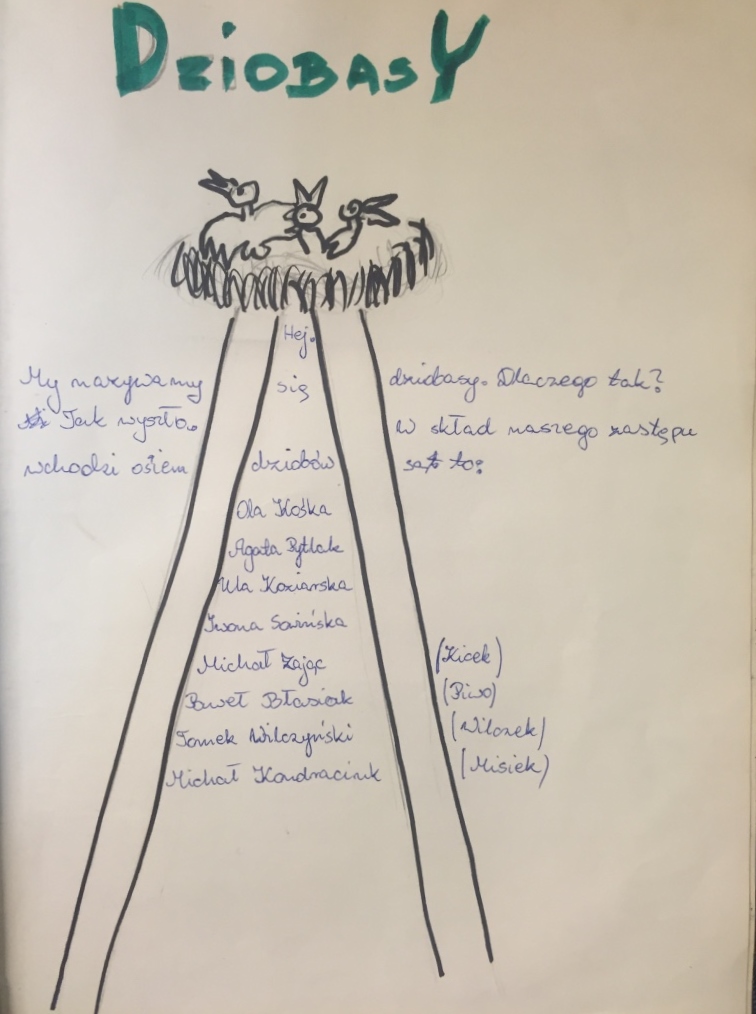 DZIOBASY
Hej.
My nazywamy się dziobasy. Dlaczego tak?
Tak wyszło. W skład naszego zastępu
wchodzi osiem dziobów są to:
Ola Kośka
Agata Pytlak
Ula Koziarska
Iwona Sawińska
Michał Zając (Kicek)
Paweł Błasiak (Piwo)
Tomek Wilczyński (Wilczek)
Michał Kondraciuk (Misiek)